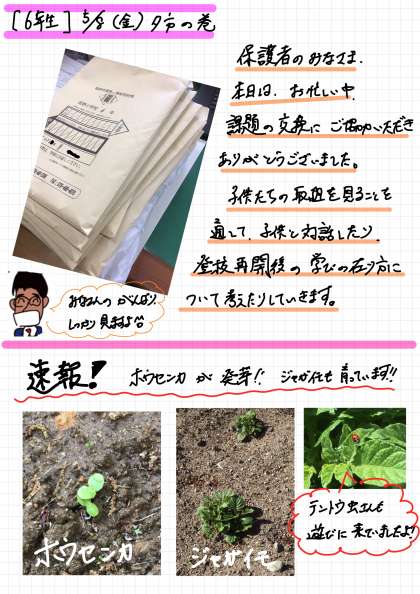 [6年生] 5/8(金)夕方の巻
保護者のみなさま、
本日は、お忙い中、
課題の交換にご協力いただき
ありがとうございました。
子供たちの取組を見ることを
通して、子供と対話したり、
登校再開後の学びの在り方に
ついて考えたりしていきます。
みなさんのがんばり
しっかり見ますよ^^
速報!
ホウセンカが発芽!! ジャガイモも育っています!!
ホウセンカ
ジャガイモ
テントウ虫さんも
遊びに来ていましたよ!